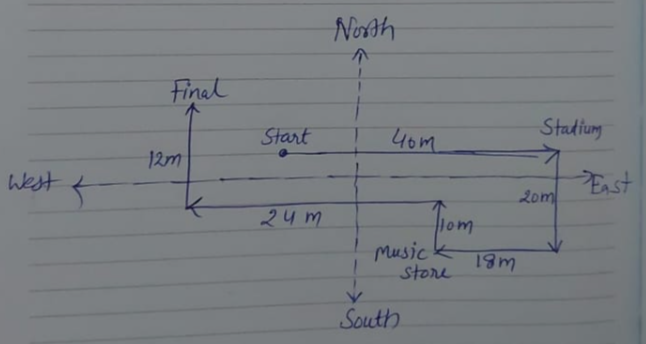 North
Final
Start
40m
Stadium
12m
West
East
20m
24m
10m
Music
Store
18m
South